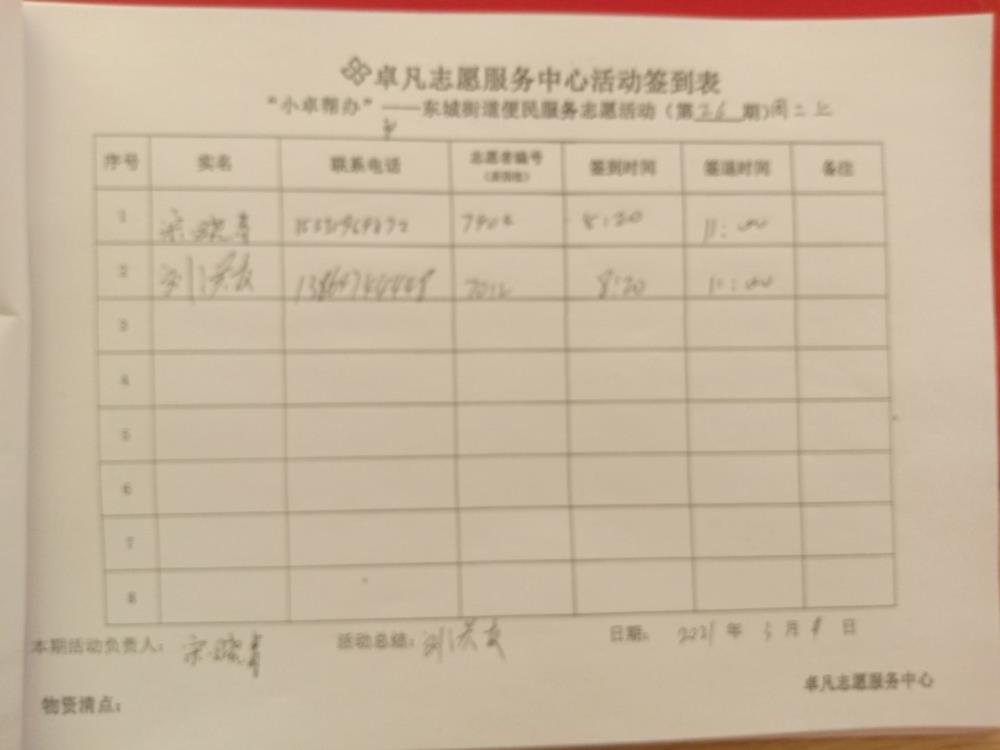 卓凡志愿服务中心活动签到表
“小卓帮办”——东城街道便民服务志愿活动（第26期）周二上
序号 实名 联系电话 志愿者编号 签到时间 签退时间 备注
1 宋晓青 8:20 11:00
2 刘洪友 7012 8:20 11:00
3
4
5
6
7
8
本期活动负责人：宋晓青 活动总结：刘洪友 日期：2021年3月9日
卓凡志愿服务中心
物资清点：